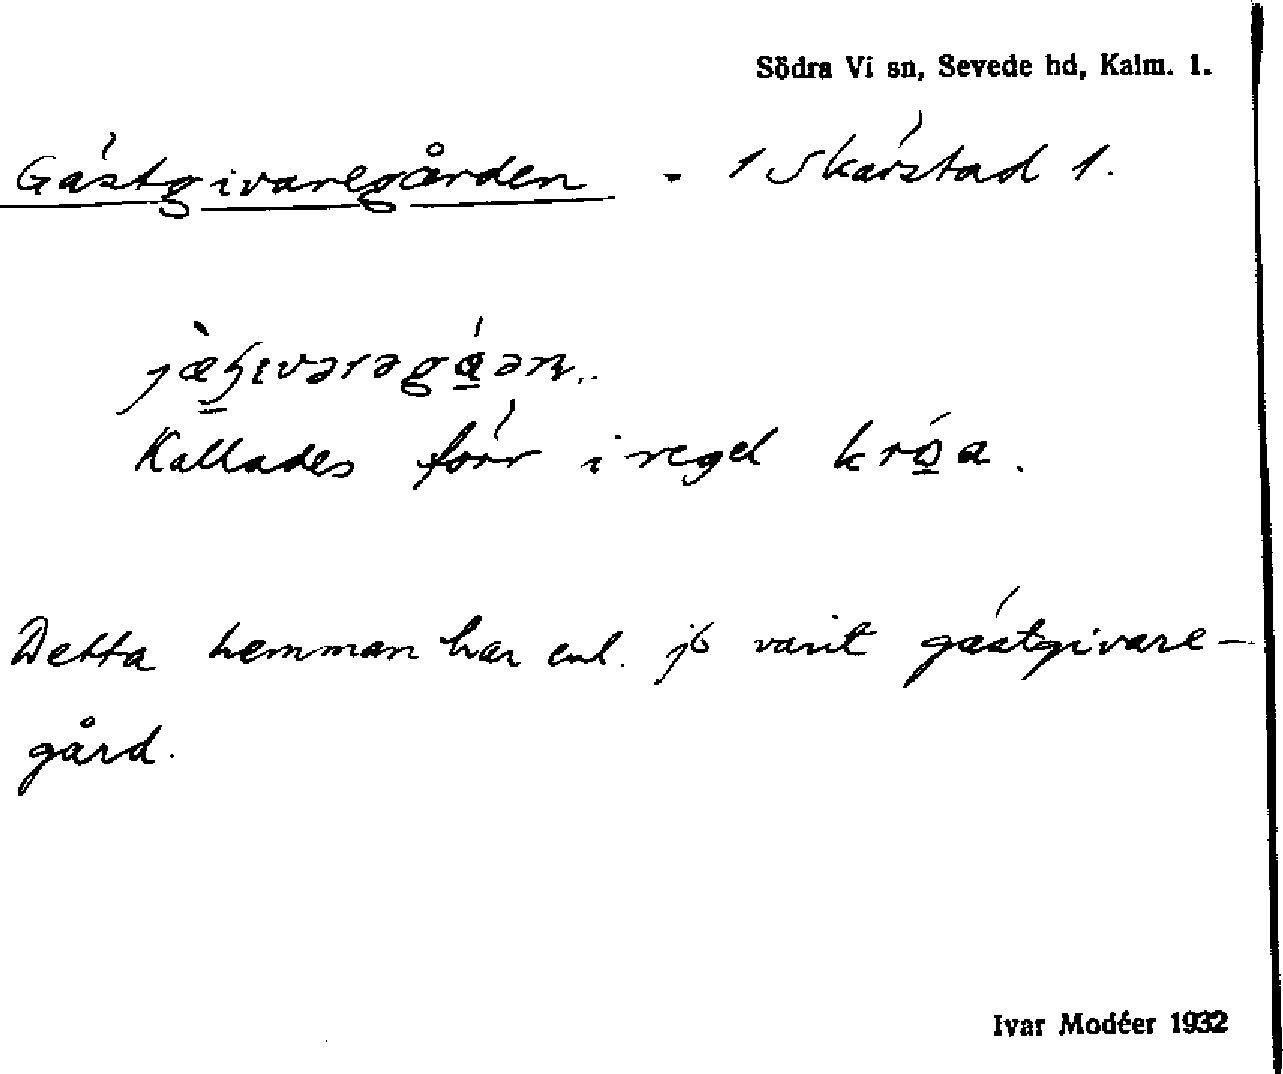 Södra Vi sn, Sevede hd, Kalm. l.
Gästgivaregården - 1 Skärstad 1.
Kallades förr i regel
Detta hemman har enl. jb varit gästgivare-
gård.
Ivar Modéer 1932